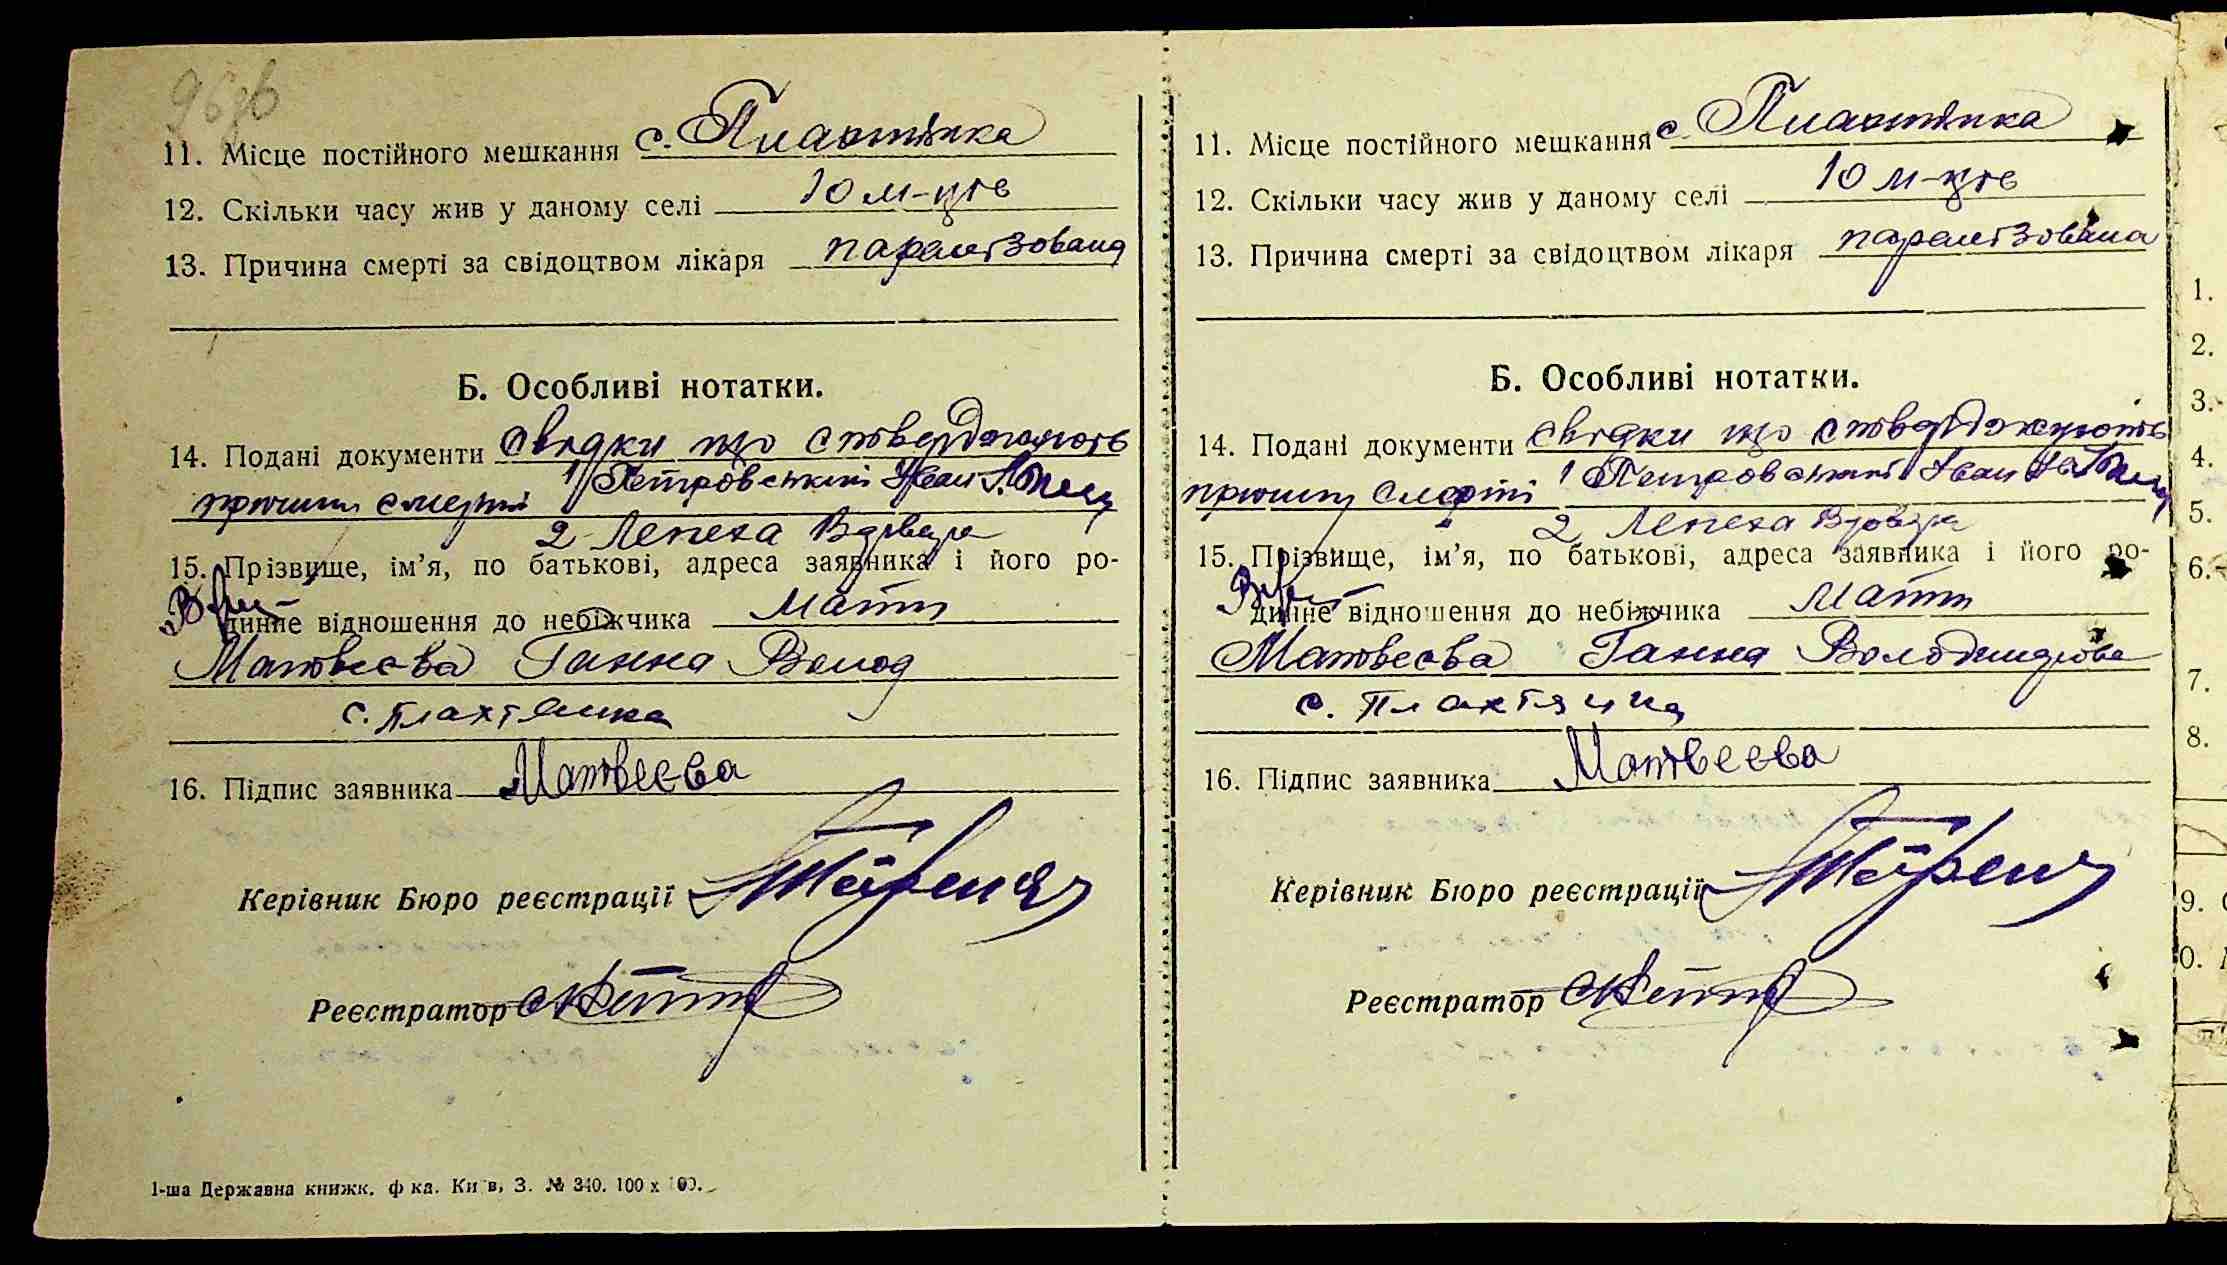 96зв
11. Місце постійного мешкання с. Плахтянка
12. Скільки часу жив у даному селі 10 м-ців
13. Причина смерті за свідоцтвом лікаря паралізована
Б. Особливі нотатки.
14. Подані документи Свідки що стверджують
причину смерті 1 Петровський Іван
2 Лепеха
15. Прізвище, ім’я, по батькові, адреса заявника і його ро-
динне відношення до небіжчика Мати
Матвеєва Ганна Волод
с. Плахтянка
16. Підпис заявника Матвеєва
Керівник Бюро реєстрації
Реєстратор
1-ша Державна книжк. ф ка. Київ, З. № 340. 100 х 100.
11. Місце постійного мешкання с. Плахтянка
12. Скільки часу жив у даному селі 10 м-ців
13. Причина смерті за свідоцтвом лікаря паралізована
Б. Особливі нотатки.
14. Подані документи Свідки що стверджують
причину смерті 1 Петровський Іван
2 Лепеха
15. Прізвище, ім’я, по батькові, адреса заявника і його ро-
динне відношення до небіжчика Мати
Матвеєва Ганна Володимирова
с. Плахтянка
16. Підпис заявника Матвеєва
Керівник Бюро реєстрації
Реєстратор
1.
2.
3.
4.
5.
6.
7.
8.
9.
0.